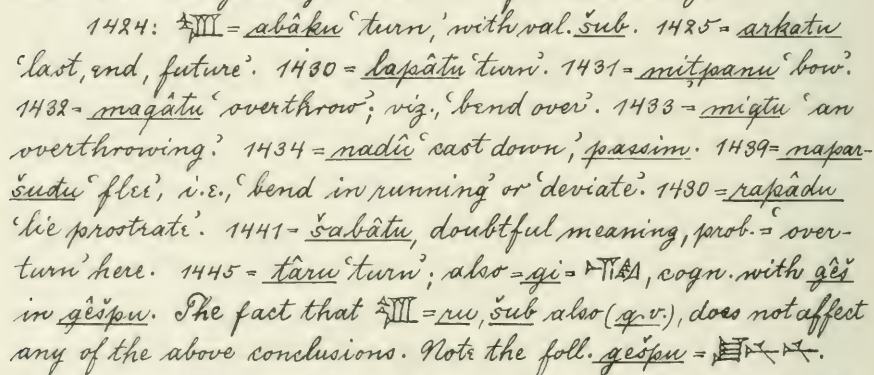 1424: 𒊒 = abâku ‘turn,’ with val. šub. 1425 = arkatu
‘last, end, future’. 1430 = lapâtu ‘turn’. 1431 = mitpanu ‘bow’.
1432 = maqâtu ‘overthrow’; viz., ‘bend over’. 1433 = miqtu ‘an
overthrowing.’ 1434 = nadû ‘cast down’, passim. 1439 = napar-
šudu ‘flee’, i.e., ‘bend in running’ or ‘deviate’. 1430 = rapâdu
‘lie prostrate’. 1441 = šabâtu, doubtful meaning, prob. = ‘over-
turn’ here. 1445 = târu ‘turn’; also = gi = , cogn. with gêš
in gêšpu. The fact that 𒊒 = ru, šub also (q.v.), does not affect
any of the above conclusions. Note the foll. gešpu = .